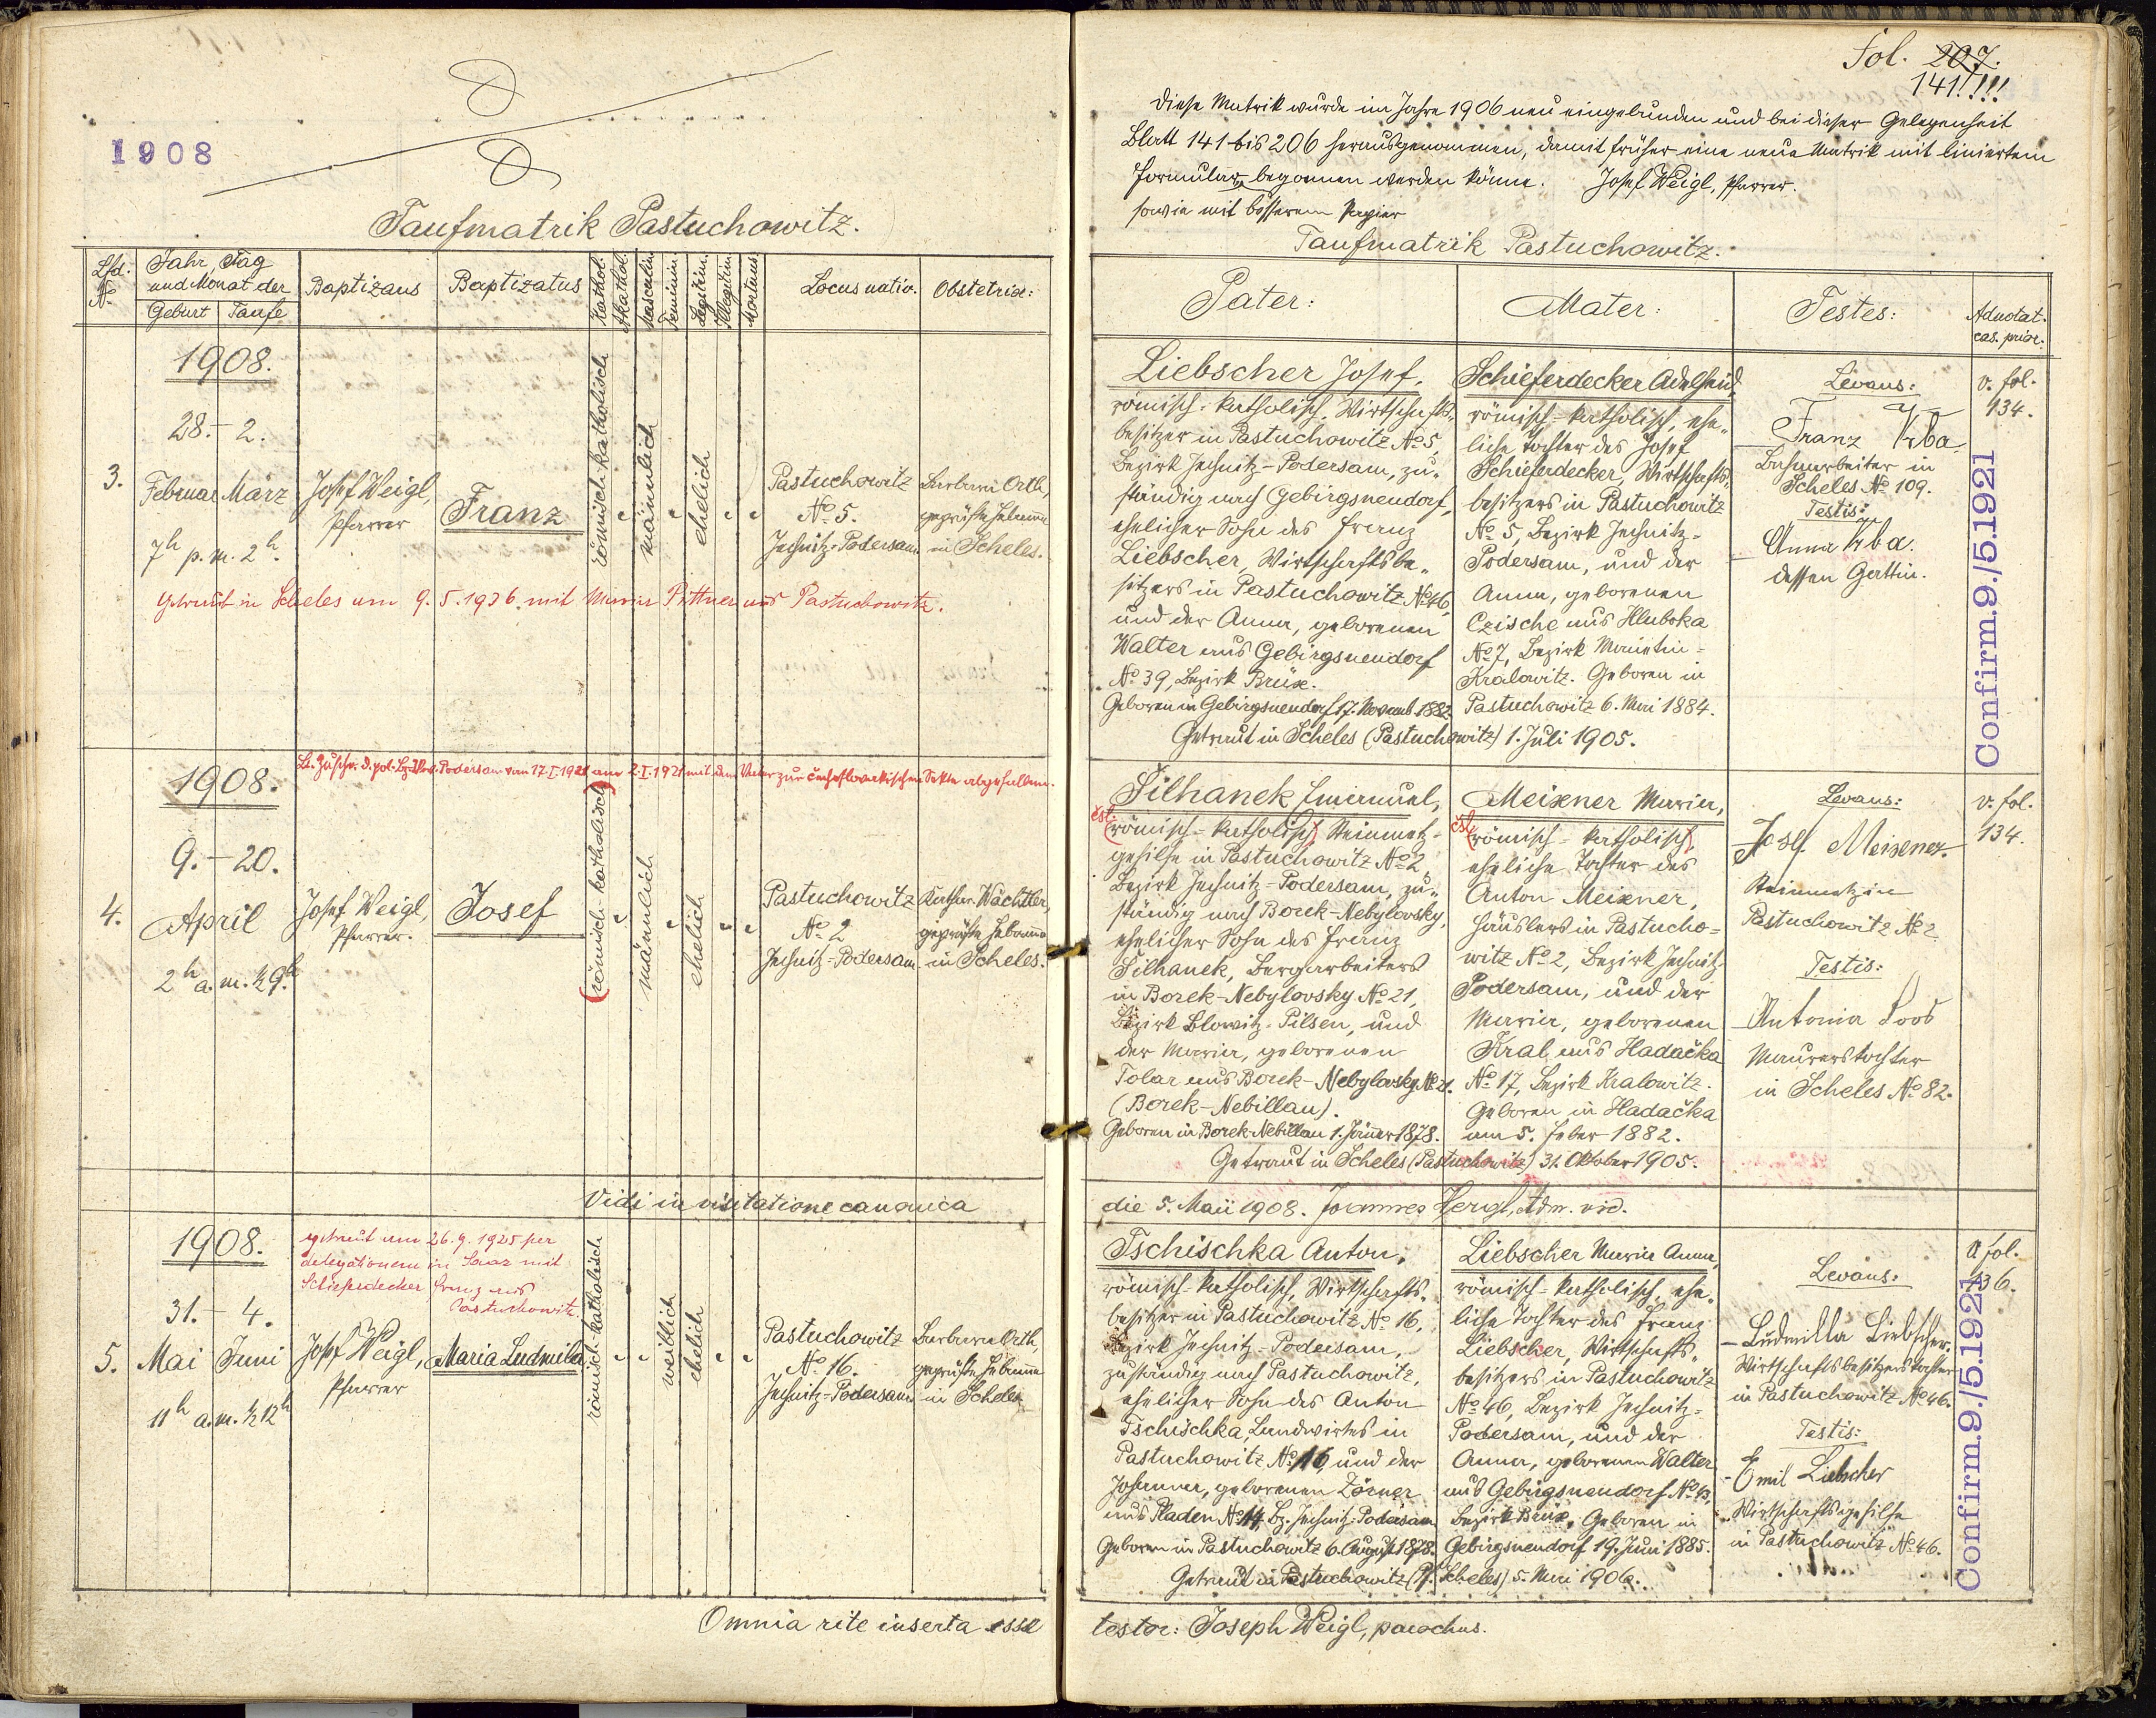 1908
Taufmatrik Pastuchowitz.
Lfd. No
Jahr, Tag
und Monat der
Geburt Taufe
Baptizans
Baptizatus
Kathol.
Akathol.
Masculin.
Feminin.
Legitim.
Illegitim.
Mortuus
Locus nativ.
Obstetrix:
1908.
28. - 2.
3.
Februar März
7h p. m. 2h.
Josef Weigl,
Pfarrer
Franz
römisch-katholisch
männlich
ehelich
Pastuchowitz
No 5.
Jechnitz-Podersam
Barbara Orth,
geprüfte Hebamme
in Scheles.
Getraut in Scheles am 9. 5. 1936 mit Maria Pittner aus Pastuchowitz.
1908.
9. - 20.
4.
April
2h a. m. ½9h
Josef Weigl,
Pfarrer.
Josef
(römisch-katholisch)
männlich
ehelich
Pastuchowitz
No 2
Jechnitz-Podersam
Kathar. Wächtler,
geprüfte Hebamme
in Scheles.
Vidi in visitatione canonica
1908.
getraut am 26. 9. 1925 per
delegationem in Saaz mit
Schieferdecker Franz aus
Pastuchowitz
31. - 4.
5. Mai Juni
11h a. m. ½12h
Josef Weigl,
Pfarrer
Maria Ludmila
römisch-katholisch
weiblich
ehelich
Pastuchowitz
No 16.
Jechnitz-Podersam
Barbara Orth,
geprüfte Hebamme
in Scheles
Omnia rite inserta esse
Fol. 207.
141!!!!
Diese Matrik wurde im Jahre 1906 neu eingebunden und bei dieser Gelegenheit
Blatt 141 bis 206 herausgenommen, damit früher eine neue Matrik mit liniertem
Formular begonnen werden könne. Josef Weigl, Pfarrer.
sowie mit besserem Papier
Taufmatrik Pastuchowitz.
Pater:
Mater:
Testes:
Adnotat.
cas. prior.
Liebscher Josef,
römisch-katholisch, Wirtschafts-
besitzer in Pastuchowitz No 5,
Bezirk Jechnitz-Podersam, zu-
ständig nach Gebirgsneudorf,
ehelicher Sohn des Franz
Liebscher, Wirtschaftsbe-
sitzers in Pastuchowitz No 46,
und der Anna, geborenen
Walter aus Gebirgsneudorf
No 39, Bezirk Brüx.
Geboren in Gebirgsneudorf 17. Novemb. 1882.
Schieferdecker Adelheid,
römisch-katholisch, ehe-
liche Tochter des Josef
Schieferdecker, Wirtschafts-
besitzers in Pastuchowitz
No 5, Bezirk Jechnitz-
Podersam, und der
Anna, geborenen
Czische aus Hluboka
No 7, Bezirk Manetin-
Kralowitz. Geboren in
Pastuchowitz 6. Mai 1884.
Getraut in Scheles (Pastuchowitz) 1. Juli 1905.
Levans:
Franz Krba
Bahnarbeiter in
Scheles No 109.
Testis:
Anna Krba.
dessen Gattin.
v. fol.
134.
Confirm. 9./5. 1921
Šilhanek Emanuel,
čsl.
(römisch-katholisch) Steinmetz-
gehilfe in Pastuchowitz No 2,
Bezirk Jechnitz-Podersam, zu-
ständig nach Borek-Nebylovsky,
ehelicher Sohn des Franz
Šilhanek, Bergarbeiters
in Borek-Nebylovsky No 21,
Bezirk Blowitz-Pilsen, und
der Maria, geborenen
Tolar aus Borek-Nebylovsky No 21.
(Borek-Nebillau).
Geboren in Borek-Nebillau 1. Jänner 1878.
Meixner Maria,
čsl.
(römisch-katholisch),
eheliche Tochter des
Anton Meixner,
Häuslers in Pastucho-
witz No 2, Bezirk Jechnitz-
Podersam, und der
Maria, geborenen
Kral aus Hadačka
No 17, Bezirk Kralowitz.
Geboren in Hadačka
am 5. Feber 1882.
Getraut in Scheles (Pastuchowitz) 31. Oktober 1905.
Levans:
Josef Meixner.
Steinmetz in
Pastuchowitz No 2
Testis:
Antonia Loos
Maurerstochter
in Scheles No 82.
v. fol.
134.
die 5. Maii 1908. Joannes Hergl, Adm. vid.
Tschischka Anton,
römisch-katholisch, Wirtschafts-
besitzer in Pastuchowitz No 16,
Bezirk Jechnitz-Podersam,
zuständig nach Pastuchowitz,
ehelicher Sohn des Anton
Tschischka, Landwirtes in
Pastuchowitz No 16, und der
Johanna, geborenen Zörner
aus Pladen No 14, Bz. Jechnitz-Podersam
Geboren in Pastuchowitz 6. August 1878.
Liebscher Maria Anna,
römisch-katholisch, ehe-
liche Tochter des Franz
Liebscher, Wirtschafts-
besitzers in Pastuchowitz
No 46, Bezirk Jechnitz-
Podersam, und der
Anna, geborenen Walter
aus Gebirgsneudorf No 43,
Bezirk Brüx. Geboren in
Gebirgsneudorf 19. Juni 1885.
Getraut in Pastuchowitz (Pf. Scheles) 5. Mai 1906.
Levans:
Ludmilla Liebscher.
Wirtschaftsbesitzerstochter
in Pastuchowitz No 46.
Testis:
Emil Liebscher
Wirtschaftsgehilfe
in Pastuchowitz No 46.
fol.
136.
Confirm. 9./5. 1921
testor: Joseph Weigl, parochus.